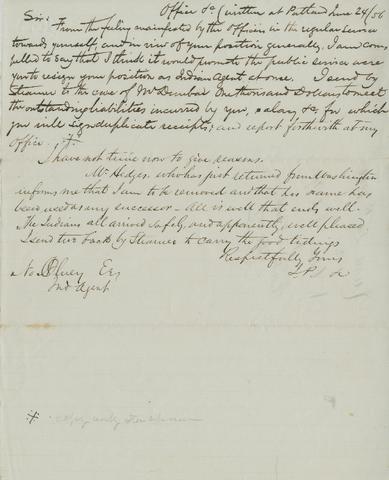 Office &c (written at Portland June 24/56
Sir: From the feeling manifested by the Officers in the regular service
toward yourself, and in view of your position generally, I am com
pelled to say that I think it would promote the public service were
you to resign your position as Indian Agent at once. I send by
Steamer to the care of Mr Dunbar One thousand Dollars to meet
the outstanding liabilities incurred by you, salary &c, for which
you will sign duplicate receipts, and report forthwith at my
office.
I have not time now to give reasons.
Mr Hedges, who has just returned from Washington
informs me that I am to be removed and that his name has
been used as my successor — All is well that ends well.
The Indians all arrived safely, and apparently well pleased
I send two back by Steamer to carry the good tidings
Respectfully Yours
Olney Esq
Ind Agent
copy only